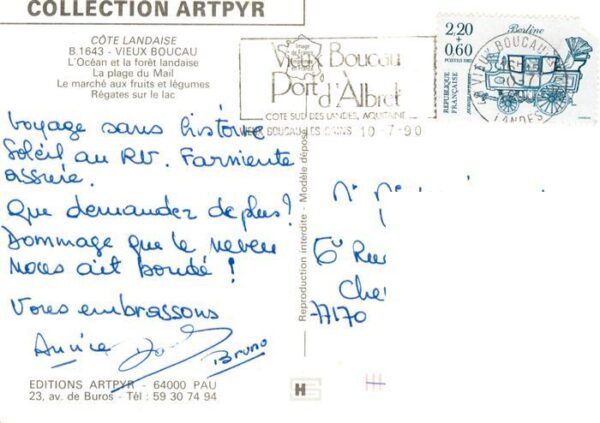 COLLECTION ARTPYR
CÔTE LANDAISE
B.1643 - VIEUX BOUCAU
L'Océan et la forêt landaise
La plage du Mail
Le marché aux fruits et légumes
Régates sur le lac
Vieux Boucau
Port d'Albret
COTE SUD DES LANDES, AQUITAINE
VIEUX BOUCAU LES BAINS 10-7-90
Berline
2,20
+0,60
POSTES 1987
REPUBLIQUE
FRANÇAISE
VIEUX BOUCAU
LANDES
Voyage sans histoire
Soleil au RV. Farniente
assurée.
Que demander de plus?
Dommage que le neveu
nous ait boudé !
Vous embrassons
Annie
Bruno
Reproduction interdite - Modèle déposé
6 Rue
Che
77170
EDITIONS ARTPYR - 64000 PAU
23, av. de Buros - Tél : 59 30 74 94